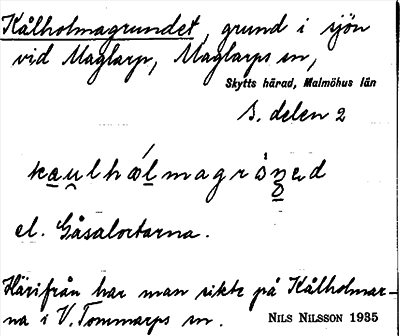 Kålholmagrundet, grund i sjön
vid Maglarp, Maglarps sn,
Skytts härad, Malmöhus län
S. delen 2
kaulhólmagrónəd
el. Gåsalortarna.
Härifrån har man sikte på Kålholmar-
na i V. Tommarps sn. NILS NILSSON 1935